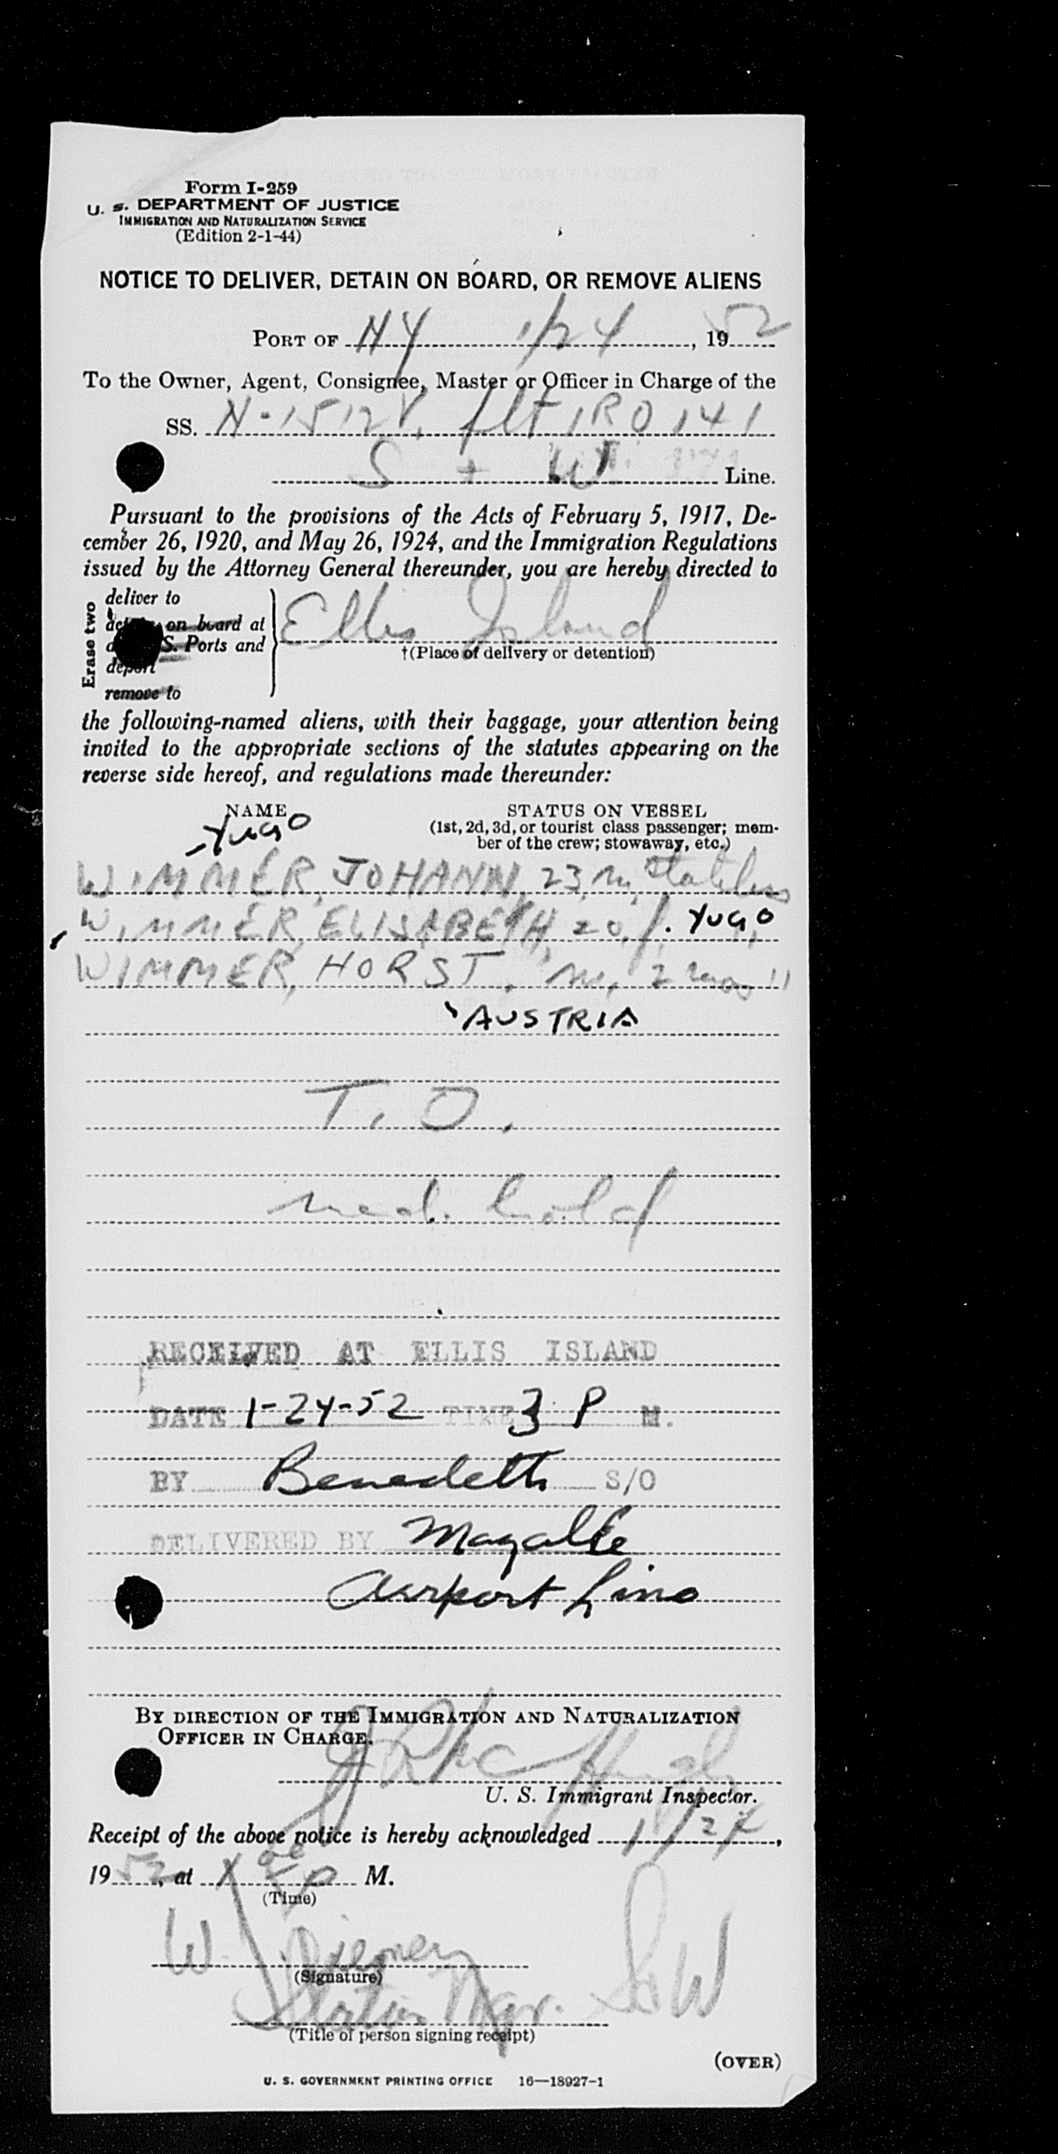 Form I-259
U. S. DEPARTMENT OF JUSTICE
IMMIGRATION AND NATURALIZATION SERVICE
(Edition 2-1-44)
NOTICE TO DELIVER, DETAIN ON BOARD, OR REMOVE ALIENS
PORT OF NY 1/24, 1952
To the Owner, Agent, Consignee, Master or Officer in Charge of the
SS. N-1512V, flt IRO 141
S + W Line.
Pursuant to the provisions of the Acts of February 5, 1917, De-
cember 26, 1920, and May 26, 1924, and the Immigration Regulations
issued by the Attorney General thereunder, you are hereby directed to
Erase two
deliver to
on board at
S. Ports and
deport
remove to
Ellis Island
†(Place of delivery or detention)
the following-named aliens, with their baggage, your attention being
invited to the appropriate sections of the statutes appearing on the
reverse side hereof, and regulations made thereunder:
NAME STATUS ON VESSEL
(1st, 2d, 3d, or tourist class passenger; mem-
ber of the crew; stowaway, etc.)
-YUGO
WIMMER, JOHANN, 23, m, Stateless
WIMMER, ELISABETH, 20, f. YUGO "
WIMMER, HORST, m, 2 mos "
AUSTRIA
T. O.
med. hold
RECEIVED AT ELLIS ISLAND
DATE 1-24-52 TIME 3 P M.
BY Benedetti S/O
DELIVERED BY
Airport Limo
BY DIRECTION OF THE IMMIGRATION AND NATURALIZATION
OFFICER IN CHARGE.
U. S. Immigrant Inspector.
Receipt of the above notice is hereby acknowledged 1/24,
1952, at M.
(Time)
W.
(Signature)
Station Mgr. S+W
(Title of person signing receipt)
(OVER)
U. S. GOVERNMENT PRINTING OFFICE 16—18927-1